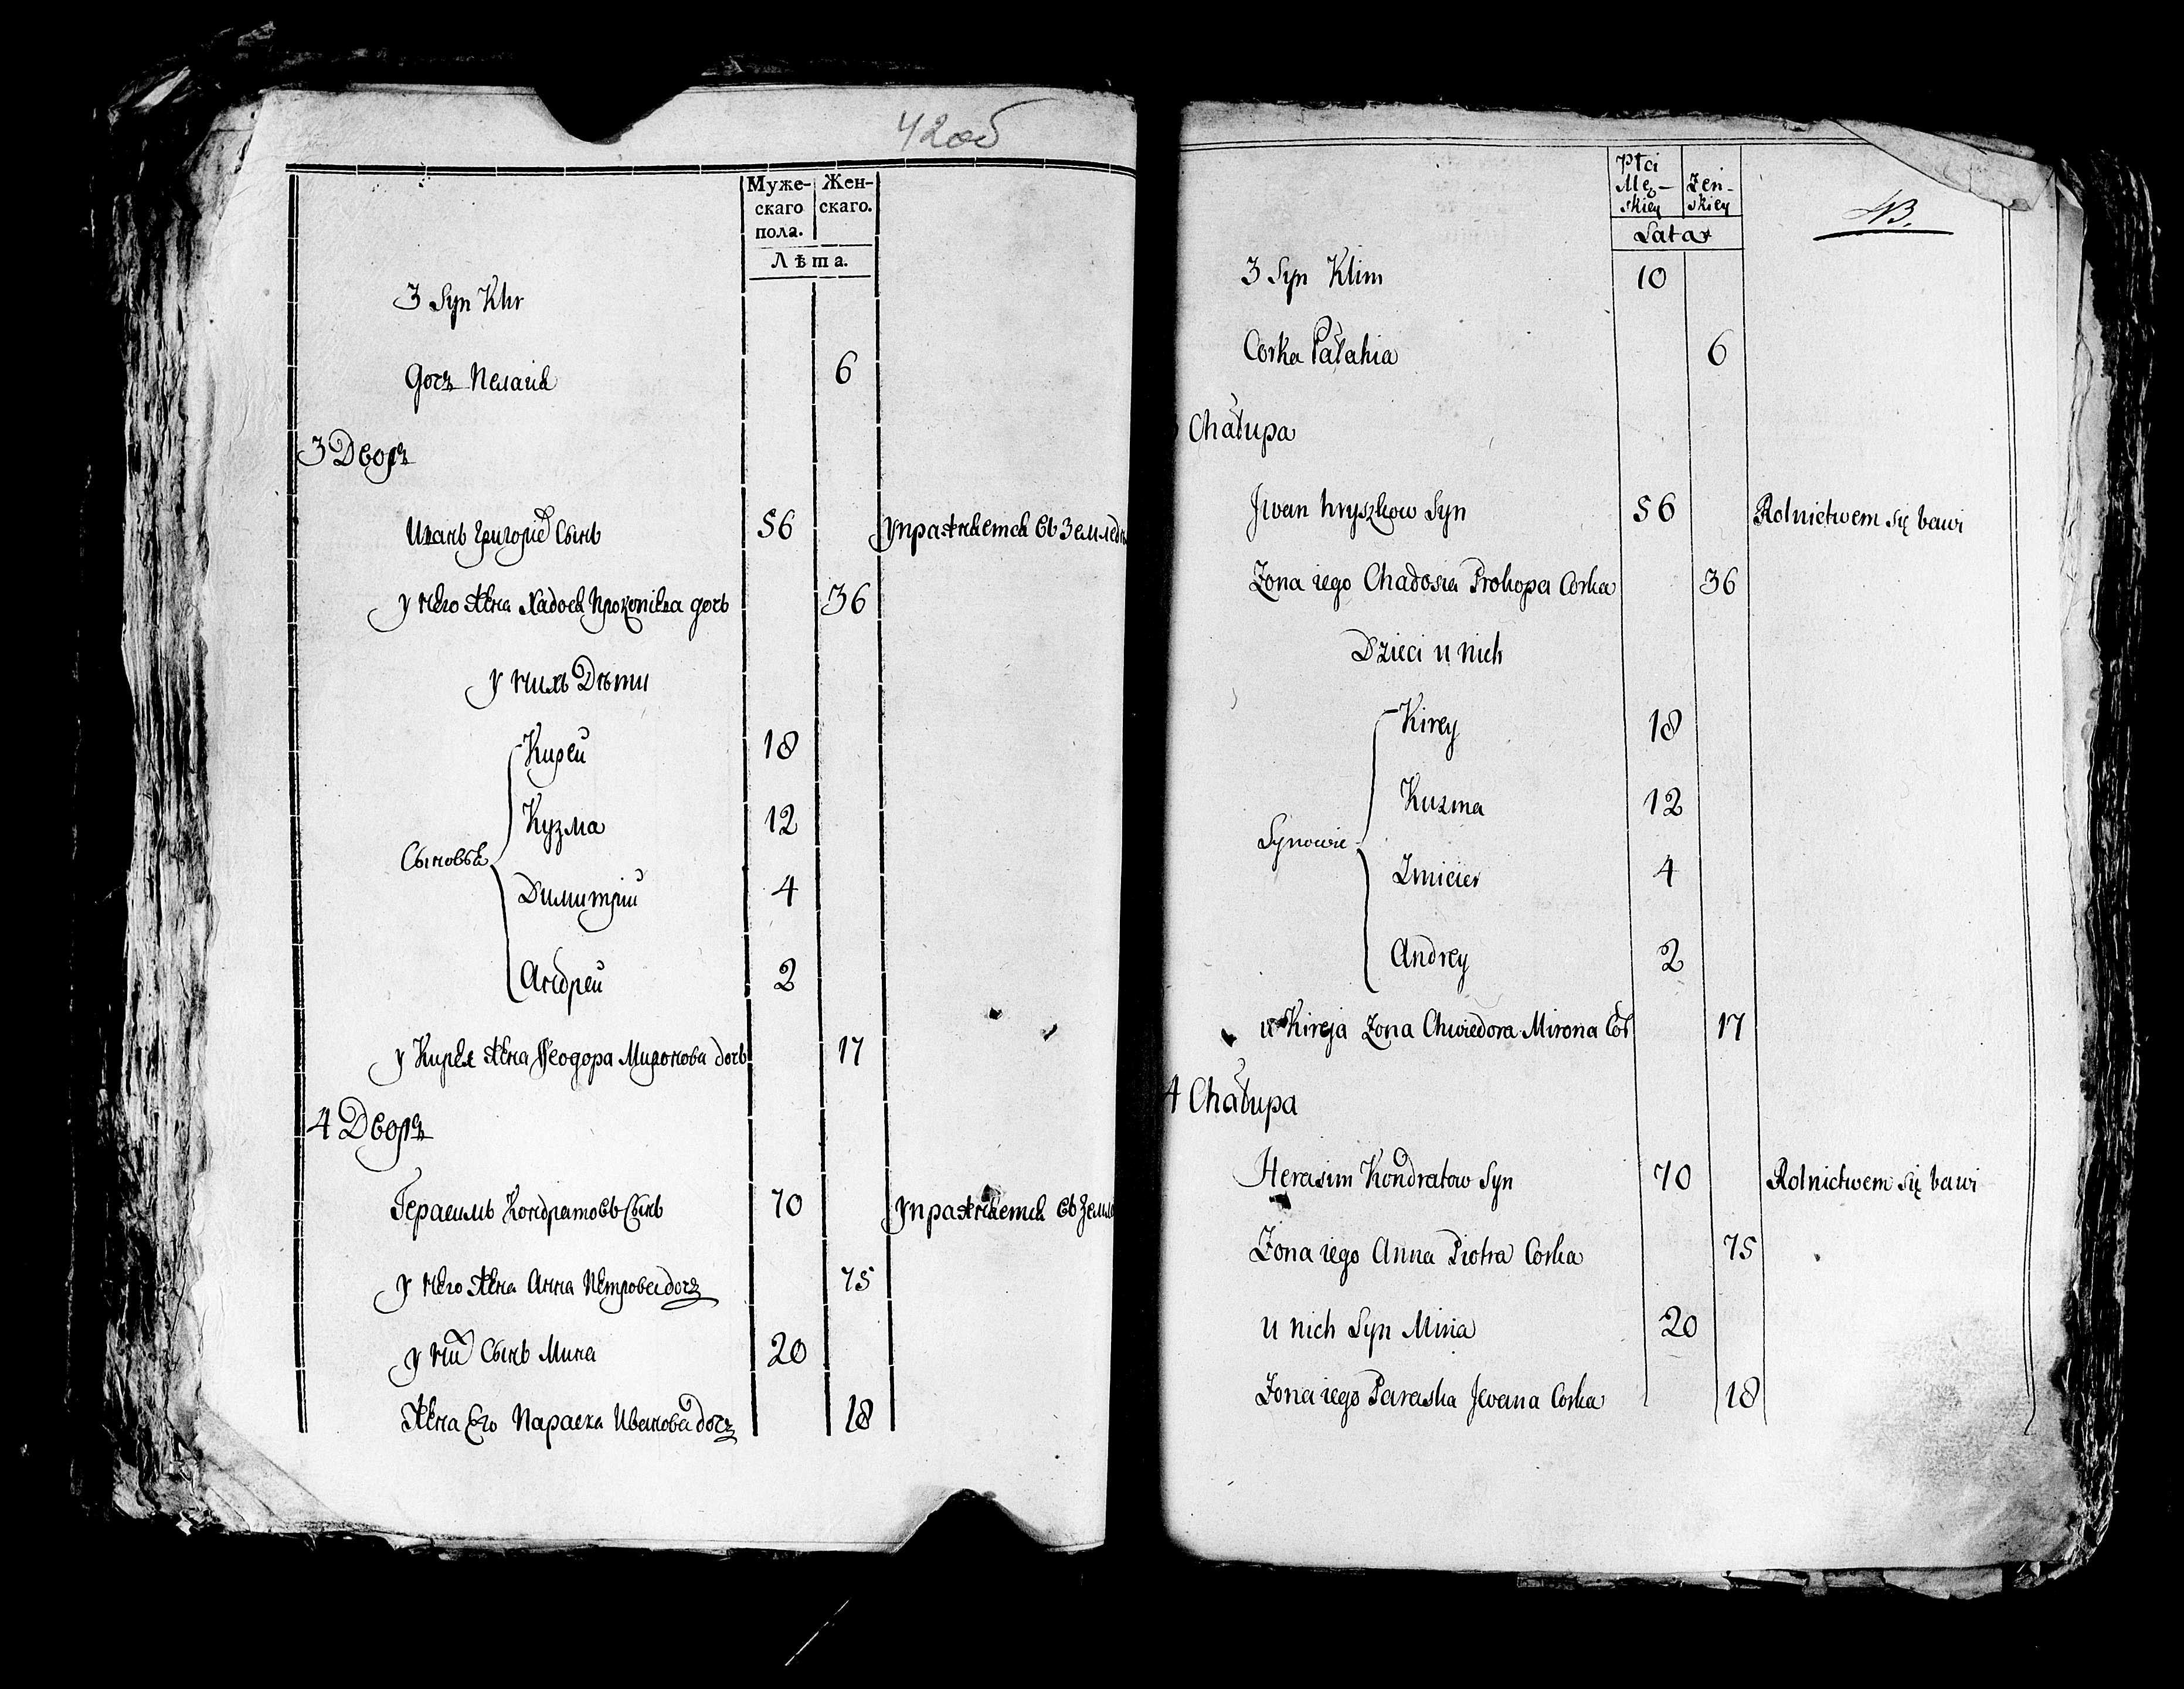 42об
Муже- Жен-
скаго скаго.
пола.
Лѣта.
3 Syn Kli
дочъ Пелагія 6
3 Дворъ
Иванъ Григорьев Сынъ 56 Упражняется въ Землед
у него жена Хадося Прокопіева дочь 36
у нихъ Дѣти
Кирей 18
Кузма 12
Сыновья
Димитрій 4
Андрей 2
у Кирея жена Феодора Миронова дочь 17
4 Дворъ
Герасимъ Кондратовъ Сынъ 70 Упражняется въ Земле
у него жена Анна Петрова дочъ 75
у них Сынъ Мина 20
Жена Его Параска Иванова дочъ 18
Płci
Mez- Zen-
skiey skiey
43.
Lata
3 Syn Klim 10
Corka Pałahia 6
Chałupa
Jwan hryszkow Syn 56 Rolnictwem się bawi
Zona iego Chadosia Prokopa Corka 36
Dzieci u nich
Kirey 18
Kuzma 12
Synowie
Zmicier 4
Andrey 2
u Kireja Zona Chwiedora Mirona Cor 17
4 Chałupa
Herasim Kondratow Syn 70 Rolnictwem się bawi
Zona iego Anna Piotra Corka 75
u nich Syn Mina 20
Zona iego Paraska Jwana Corka 18